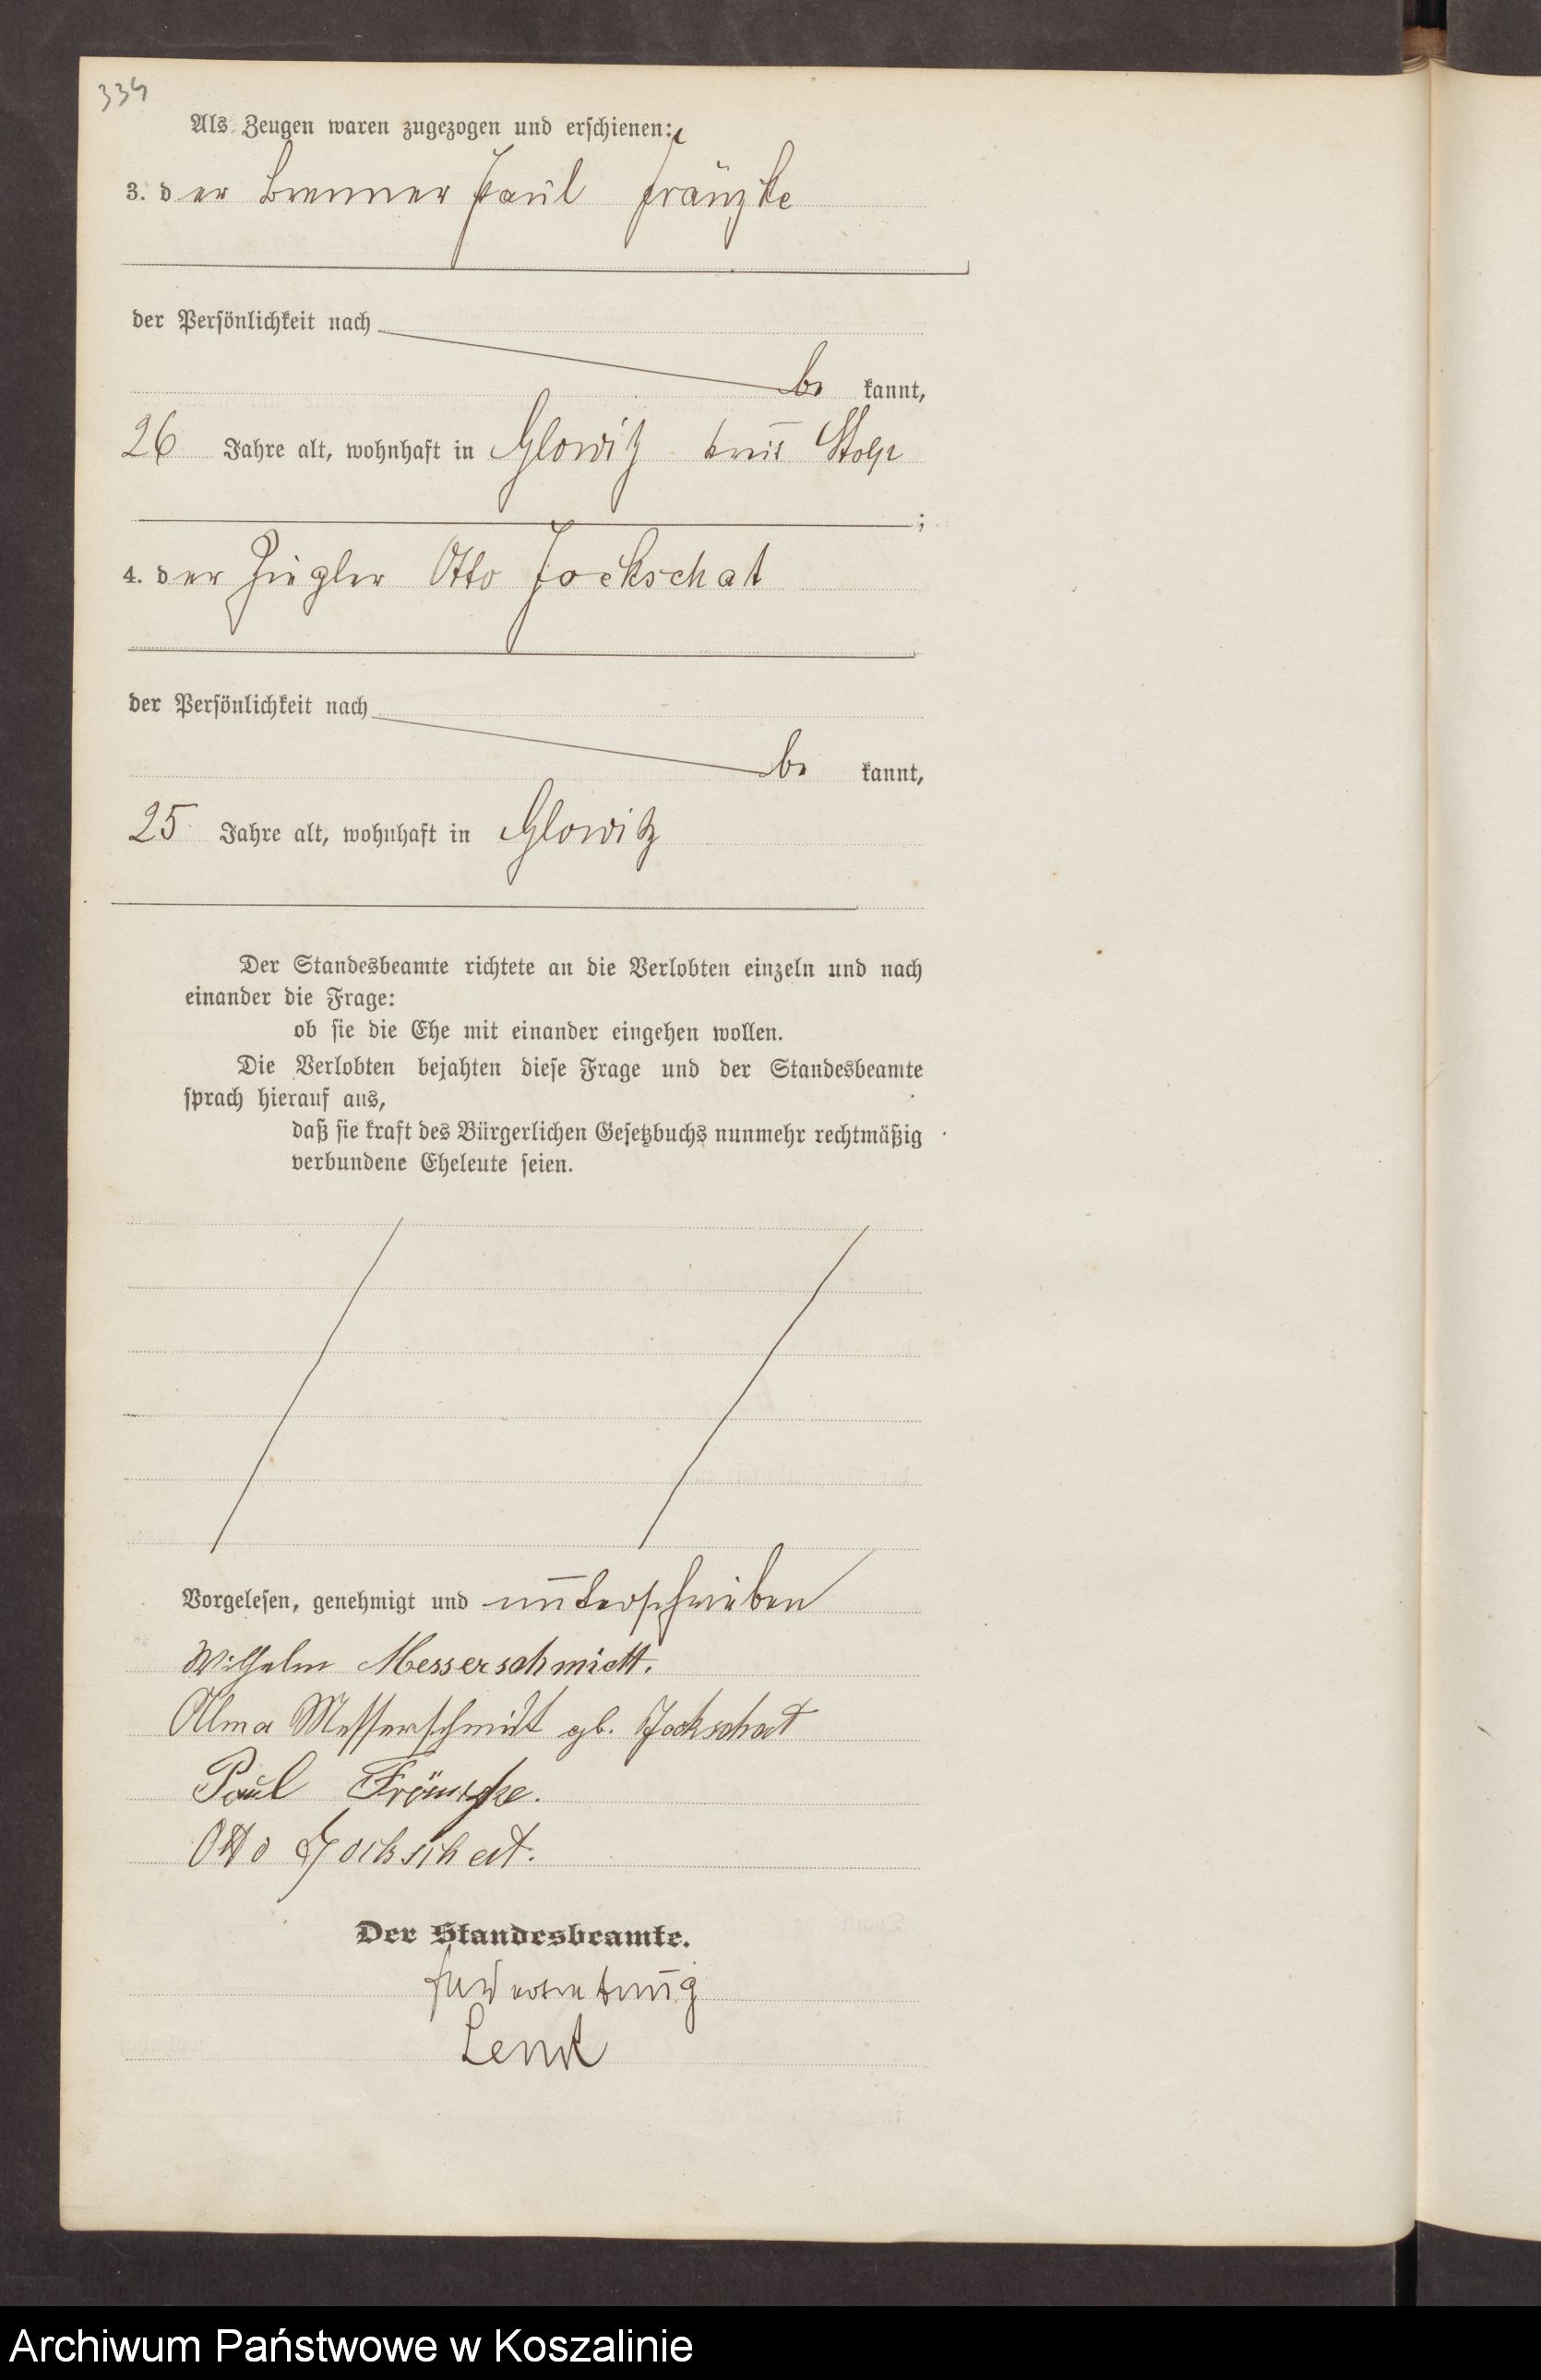 334
Als Zeugen waren zugezogen und erschienen:
3. der Brenner Paul Fränzke
der Persönlichkeit nach
be kannt,
26 Jahre alt, wohnhaft in Glowitz Kreis Stolp
;
4. der Ziegler Otto Jockschat
der Persönlichkeit nach
be kannt,
25 Jahre alt, wohnhaft in Glowitz
Der Standesbeamte richtete an die Verlobten einzeln und nach
einander die Frage:
ob sie die Ehe mit einander eingehen wollen.
Die Verlobten bejahten diese Frage und der Standesbeamte
sprach hierauf aus,
daß sie kraft des Bürgerlichen Gesetzbuchs nunmehr rechtmäßig
verbundene Eheleute seien.
Vorgelesen, genehmigt und unterschrieben
Wilhelm Messerschmidt.
Alma Messerschmidt gb. Jockschat
Paul Fränzke.
Otto Jockschat.
Der Standesbeamte.
In Vertretung
Archiwum Państwowe w Koszalinie